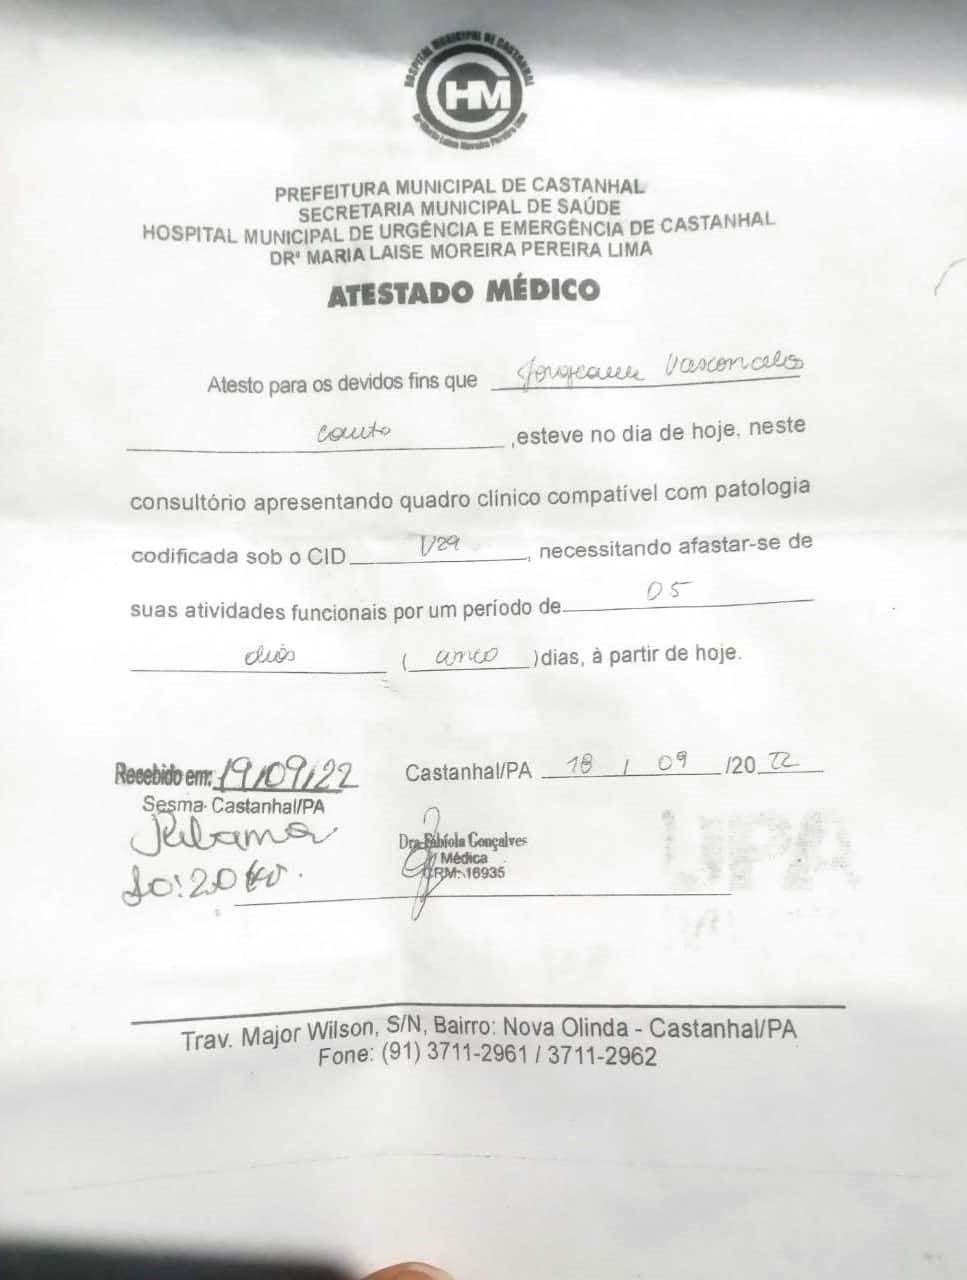 HOSPITAL MUNICIPAL DE CASTANHAL
HM
Drª Maria Laise Moreira Pereira Lima
PREFEITURA MUNICIPAL DE CASTANHAL
SECRETARIA MUNICIPAL DE SAÚDE
HOSPITAL MUNICIPAL DE URGÊNCIA E EMERGÊNCIA DE CASTANHAL
DRª MARIA LAISE MOREIRA PEREIRA LIMA
ATESTADO MÉDICO
Atesto para os devidos fins que Vasconcelos
couto ,esteve no dia de hoje, neste
consultório apresentando quadro clínico compatível com patologia
codificada sob o CID , necessitando afastar-se de
suas atividades funcionais por um período de 05
dias ( cinco )dias, à partir de hoje.
Recebido em: 19/09/22
Sesma- Castanhal/PA
Castanhal/PA 18 / 09 /20 22
10:20
Dra Fabíola Gonçalves
Médica
CRM: 16935
UPA
Trav. Major Wilson, S/N, Bairro: Nova Olinda - Castanhal/PA
Fone: (91) 3711-2961 / 3711-2962